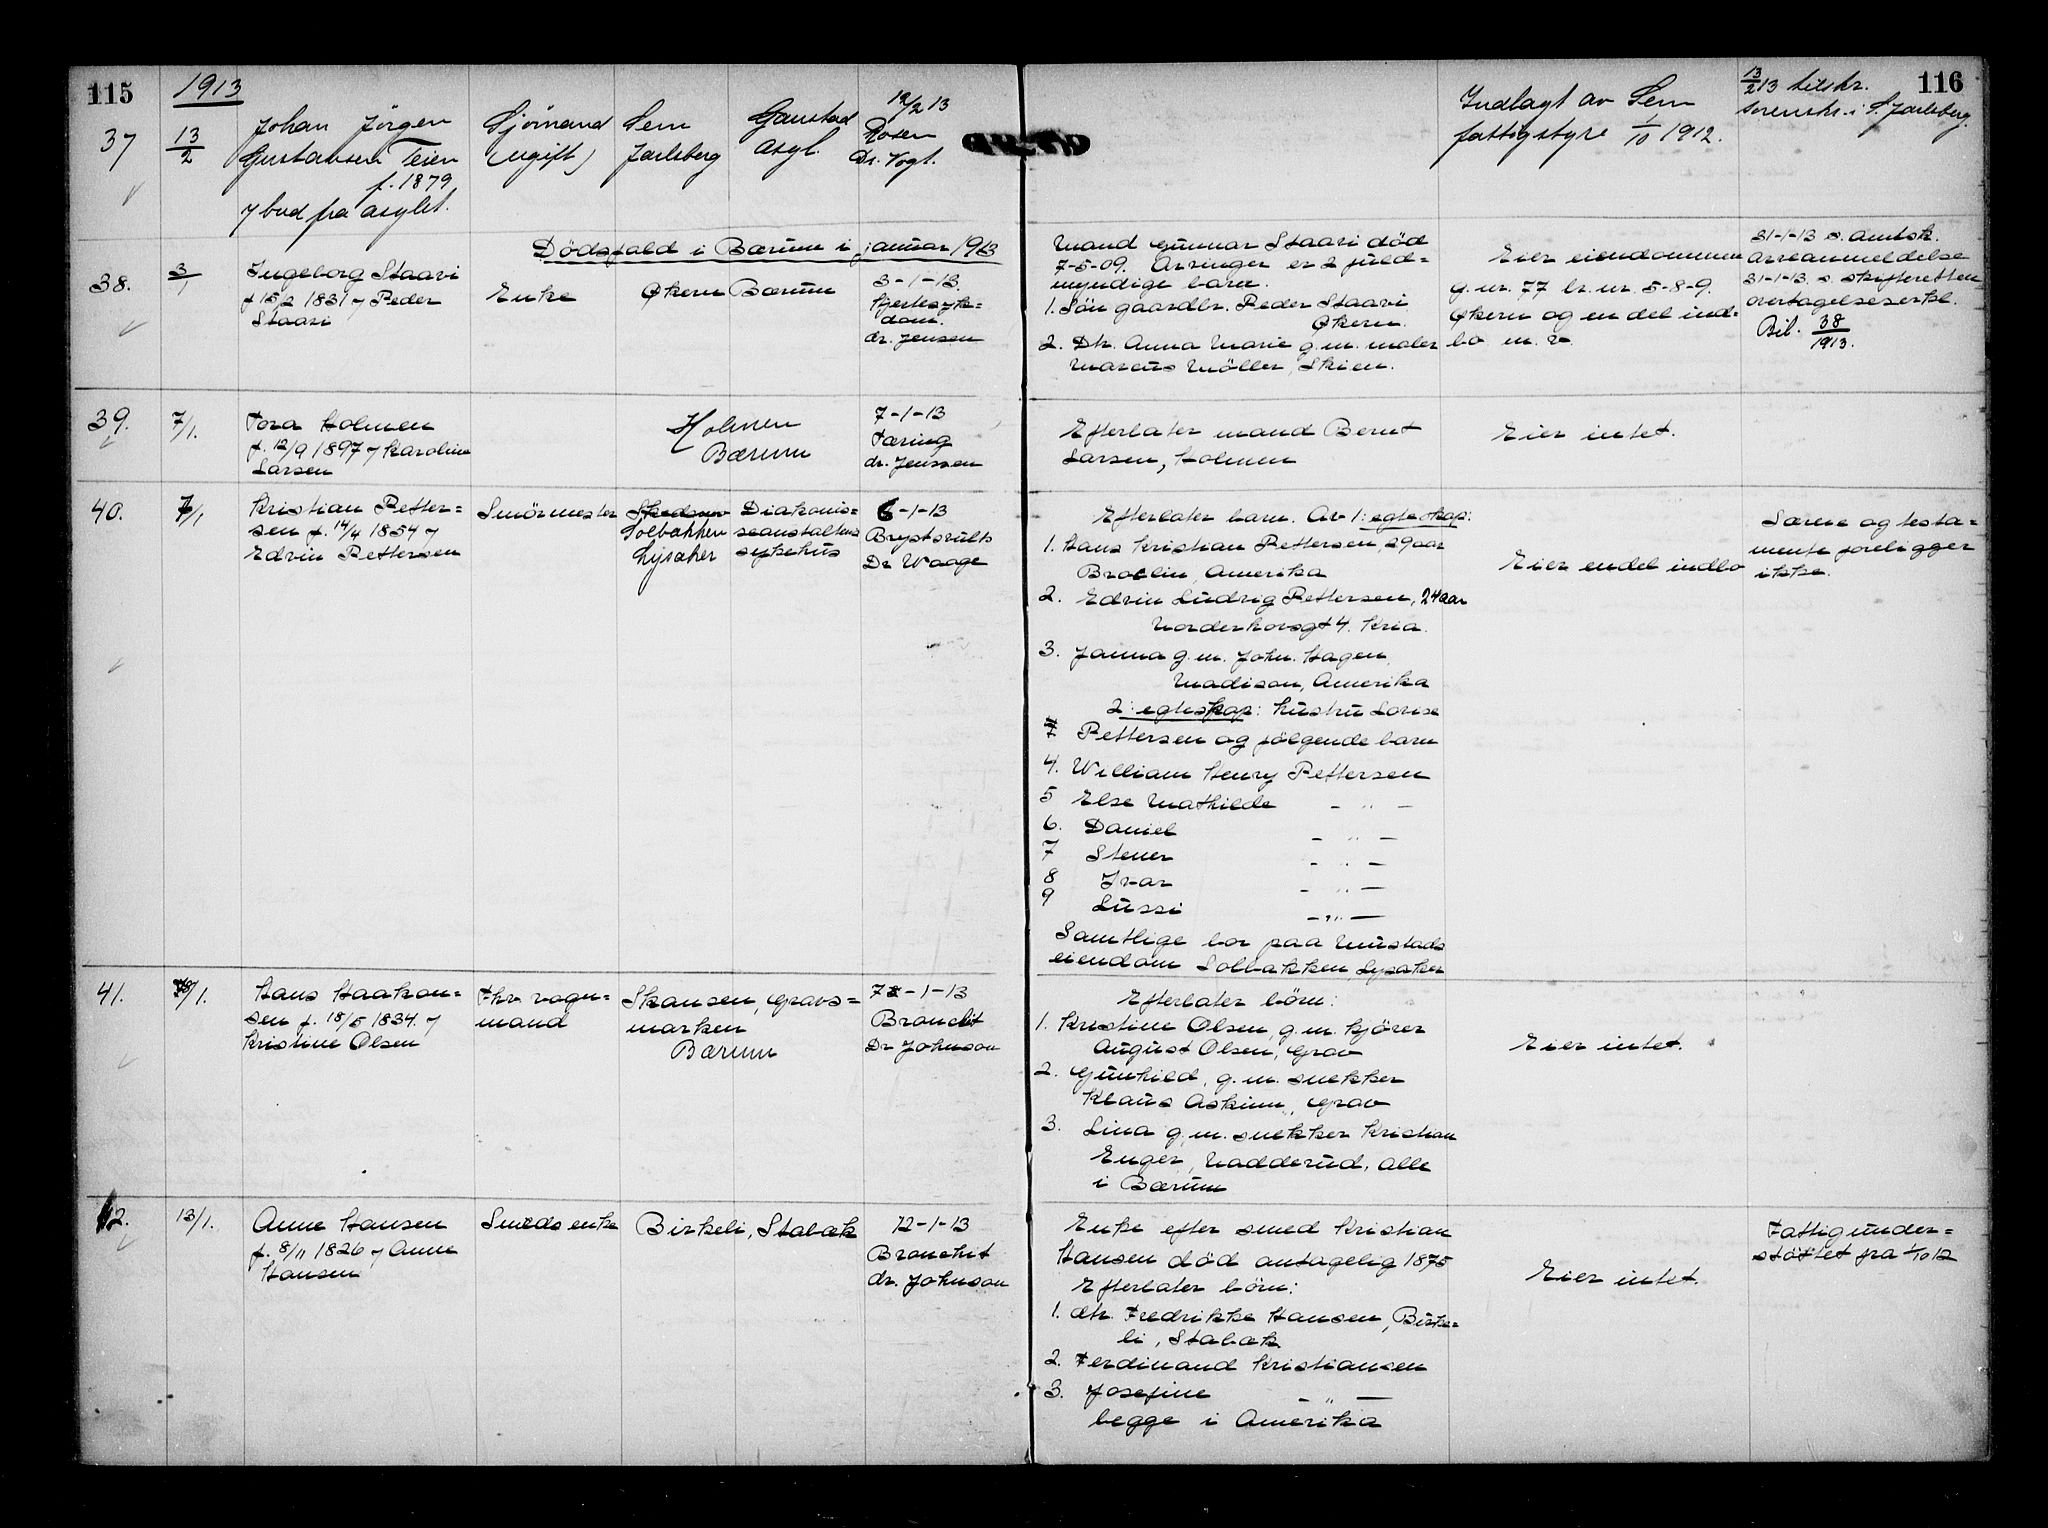 115
1913
116
37
13/2
Johan Jörgen
Gustavsen Teien
f. 1879
y bud fra asylet.
Sjömand
(ugift)
Sem
Jarlsberg
Gaustad
asyl.
12/2 13
Rosen
Dr. Vogt.
Indlagt av Sem
fattigstyre 1/10 1912.
13/2 13 tilskr.
sorenskr. i S. Jarlsberg.
Dödsfald i Bærum i januar 1913
38.
3/1
Ingeborg Staavi
f 15/2 1831 y Peder
Staavi
Enke
Økern Bærum
3-1-13.
Hjertesyk=
dom.
dr. Jensen
Mand Gunnar Staavi död
7-5-09. Arvinger er 2 fuld=
myndige barn.
1. Sön gaardbr. Peder Staavi
Økern.
2. Dtr. Anna Marie g.m. maler
Marcus Möller, Skien.
Eier eiendommen
g. nr. 77 br. nr. 5-8-9.
Økern og en del ind=
bo m. v.
31-1-13 s. amtsk.
arveanmeldelse
31-1-13. s. skifteretten
overtagelseserkl.
Bil. 38/1913.
39.
7/1.
Tora Holmen
f. 12/9 1897 y Karoline
Larsen
Holmen
Bærum
7-1-13
Tæring
dr. Jenssen
Efterlater mand Bernt
Larsen, Holmen
Eier intet.
40.
7/1
Kristian Petter=
sen f. 14/4 1854 y
Edvin Pettersen
Smörmester
Solbakken
Lysaker
Diakonis=
seanstaltens
sykehus
6-1-13
Brystsvulst
Dr Waage
Efterlater barn. Av 1: egteskap:
1. Hans Kristian Pettersen, 29 aar
Broclin, Amerika
2. Edvin Ludvig Pettersen, 24 aar
Norderhovsgt 4. Kria.
3. Janna g.m. John. Hagen,
Madison, Amerika
2: egteskap: hustru Lovise
Pettersen og fölgende barn
4. William Henry Pettersen
5 Else Mathilde - " -
6. Daniel - " -
7 Stener - " -
8 Ivar - " -
9 Lussi - " -
Samtlige bor paa Mustads
eiendom Solbakken, Lysaker
Eier endel indbo
Særeie og testa=
mente foreligger
ikke.
41.
/1.
Hans Haakon=
sen f. 18/5 1834. y
Kristine Olsen
Fhv. vogn=
mand
Skansen, Gravs=
marken
Bærum
7-1-13
Bronchit
Dr Johnson
Efterlater börn:
1. Kristine Olsen, g.m. kjörer
August Olsen, Grav
2. Gunhild, g.m. snekker
Klaus Askinn, Grav
3. Lina g.m. snekker Kristian
Enger, Nadderud, alle
i Bærum
Eier intet.
42.
13/1.
Anne Hansen
f. 8/11 1826 y Anne
Hansen
Smeds enke
Birkeli, Stabæk
12-1-13
Bronchit
dr. Johnson
Enke efter smed Kristian
Hansen död antagelig 1875
Efterlater börn:
1. dtr. Fredrikke Hansen, Birke=
li, Stabæk
2. Ferdinand Kristiansen
3. Josefine - " -
begge i Amerika
Eier intet.
Fattigunder=
stöttet fra 1/10 12